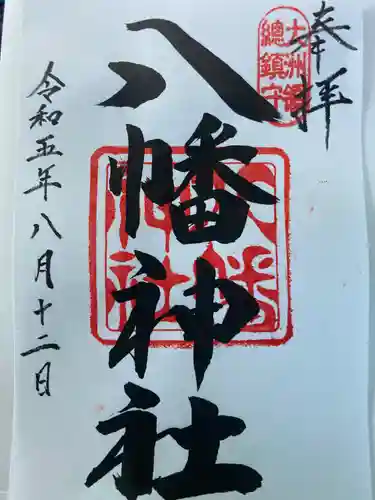 奉拝
大洲領
總鎮守
八幡神社
令和五年八月十二日